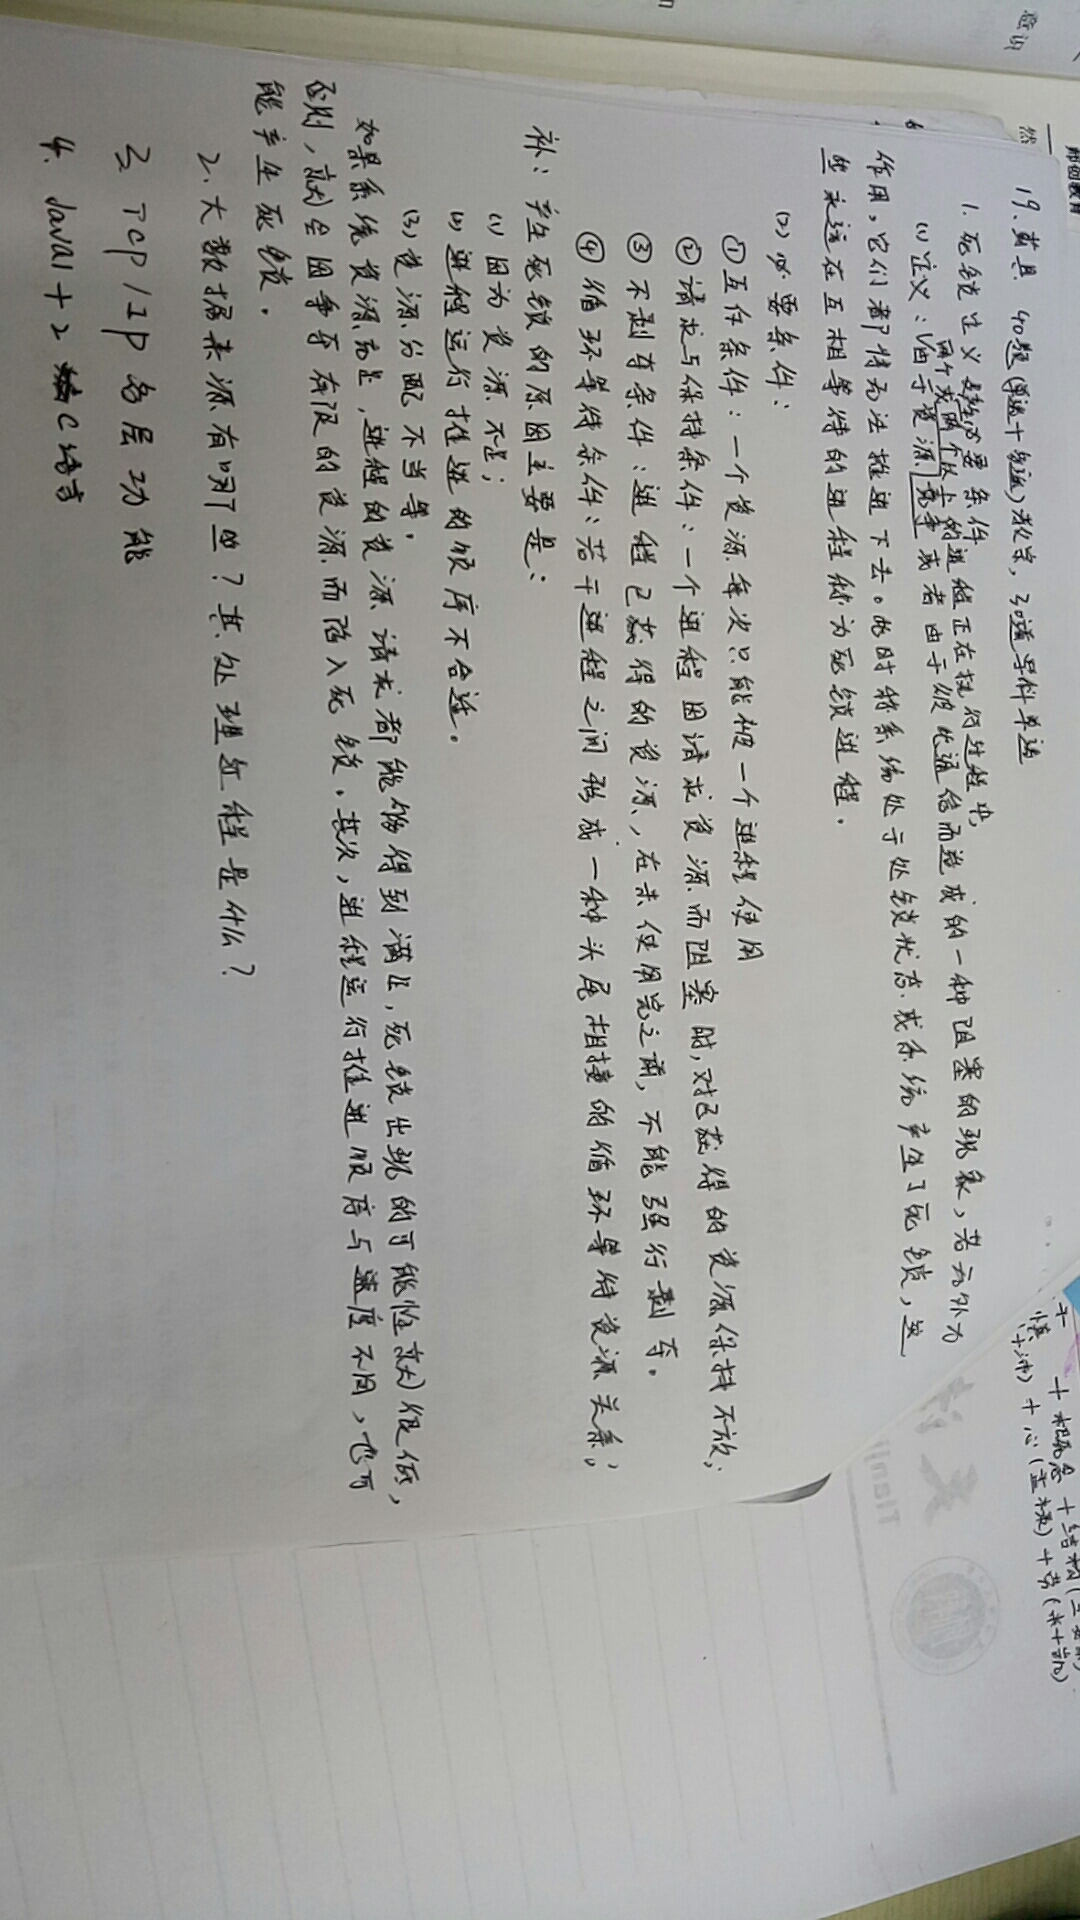 师创教育
意识
然
19. 黄县 40题(单选+多选)教宗, 30道学科单选
1. 死锁定义 及必要条件
两个或两个以上的进程正在执行过程中,
(1) 定义: 由于资源竞争或者由于彼此通信而造成的一种阻塞的现象, 若无外力
作用, 它们都将无法推进下去。此时称系统处于处锁状态或系统产生了死锁, 这
些永远在互相等待的进程称为死锁进程.
(2) 必要条件:
① 互斥条件: 一个资源每次只能被一个进程使用
② 请求与保持条件: 一个进程因请求资源而阻塞时, 对已获得的资源保持不放;
③ 不剥夺条件: 进程已获得的资源, 在未使用完之前, 不能强行剥夺.
④ 循环等待条件: 若干进程之间形成一种头尾相接的循环等待资源关系;
补: 产生死锁的原因主要是:
(1) 因为资源不足;
(2) 进程运行推进的顺序不合适.
(3) 资源分配不当等.
如果系统资源充足, 进程的资源请求都能够得到满足, 死锁出现的可能性就很低,
否则, 就会因争夺有限的资源而陷入死锁. 其次, 进程运行推进顺序与速度不同, 也可
能产生死锁.
2. 大数据来源有哪些? 其处理过程是什么?
3 TCP/IP 各层功能
4. Java1+2 C语言
Tianji